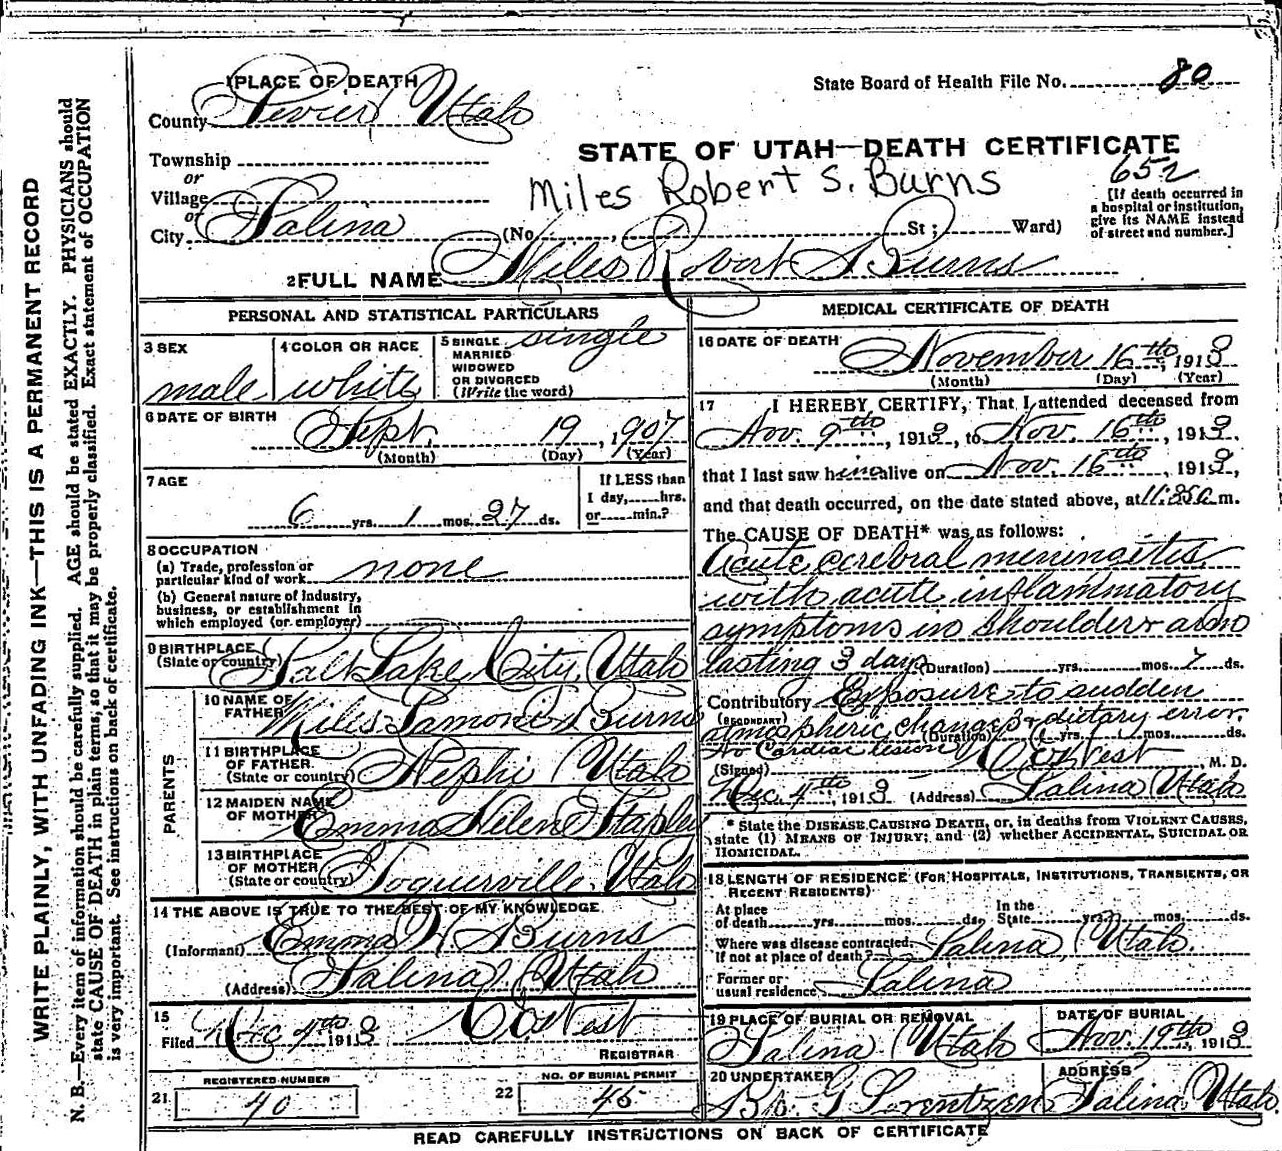 WRITE PLAINLY, WITH UNFADING INK—THIS IS A PERMANENT RECORD
N. B.—Every item of information should be carefully supplied. AGE should be stated EXACTLY. PHYSICIANS should
state CAUSE OF DEATH in plain terms, so that it may be properly classified. Exact statement of OCCUPATION
is very important. See instructions on back of certificate.
1 PLACE OF DEATH
State Board of Health File No. 80
County Sevier Utah
STATE OF UTAH—DEATH CERTIFICATE
Township
or
Village
or
City Salina
Miles Robert S. Burns
652
[If death occurred in
a hospital or institution,
give its NAME instead
of street and number.]
(No. , St ; Ward)
2 FULL NAME Miles Robert S Burns
PERSONAL AND STATISTICAL PARTICULARS
3 SEX
male
4 COLOR OR RACE
white
5 SINGLE single
MARRIED
WIDOWED
OR DIVORCED
(Write the word)
6 DATE OF BIRTH
Sept. 19, 1907
(Month) (Day) (Year)
7 AGE
6 yrs. 1 mos. 27 ds.
If LESS than
1 day, hrs.
or min.?
8 OCCUPATION
(a) Trade, profession or
particular kind of work none
(b) General nature of industry,
business, or establishment in
which employed (or employer)
9 BIRTHPLACE
(State or country) Salt Lake City, Utah
PARENTS
10 NAME OF
FATHER Miles Lamoni Burns
11 BIRTHPLACE
OF FATHER
(State or country) Nephi Utah
12 MAIDEN NAME
OF MOTHER Emma Helen Stapley
13 BIRTHPLACE
OF MOTHER
(State or country) Toquerville, Utah
14 THE ABOVE IS TRUE TO THE BEST OF MY KNOWLEDGE
(Informant) Emma H Burns
(Address) Salina, Utah
15
Filed Dec 4th 1913 West
REGISTRAR
REGISTERED NUMBER
21 40
NO. OF BURIAL PERMIT
22 45
MEDICAL CERTIFICATE OF DEATH
16 DATE OF DEATH
November 16th, 1913
(Month) (Day) (Year)
17 I HEREBY CERTIFY, That I attended deceased from
Nov. 9th, 1913, to Nov. 16th, 1913,
that I last saw him alive on Nov. 16th, 1913,
and that death occurred, on the date stated above, at 11:35 a m.
The CAUSE OF DEATH* was as follows:
Acute cerebral meningitis
with acute inflammatory
symptoms in shoulder
lasting 3 days (Duration) yrs. mos. 7 ds.
Contributory Exposure to sudden
(SECONDARY)
atmospheric changes & dietary error.
(Duration) yrs. mos. ds.
No Cardiac lesion
(Signed) West, M. D.
Dec. 4th, 1913 (Address) Salina Utah
* State the DISEASE CAUSING DEATH, or, in deaths from VIOLENT CAUSES,
state (1) MEANS OF INJURY; and (2) whether ACCIDENTAL, SUICIDAL OR
HOMICIDAL.
18 LENGTH OF RESIDENCE (FOR HOSPITALS, INSTITUTIONS, TRANSIENTS, OR
RECENT RESIDENTS)
At place
of death yrs. mos. ds.
In the
State yrs. mos. ds.
Where was disease contracted,
If not at place of death? Salina, Utah.
Former or
usual residence Salina
19 PLACE OF BURIAL OR REMOVAL
Salina Utah
DATE OF BURIAL
Nov. 19th, 1913
20 UNDERTAKER
Bp. G Lorentzen
ADDRESS
Salina, Utah
READ CAREFULLY INSTRUCTIONS ON BACK OF CERTIFICATE